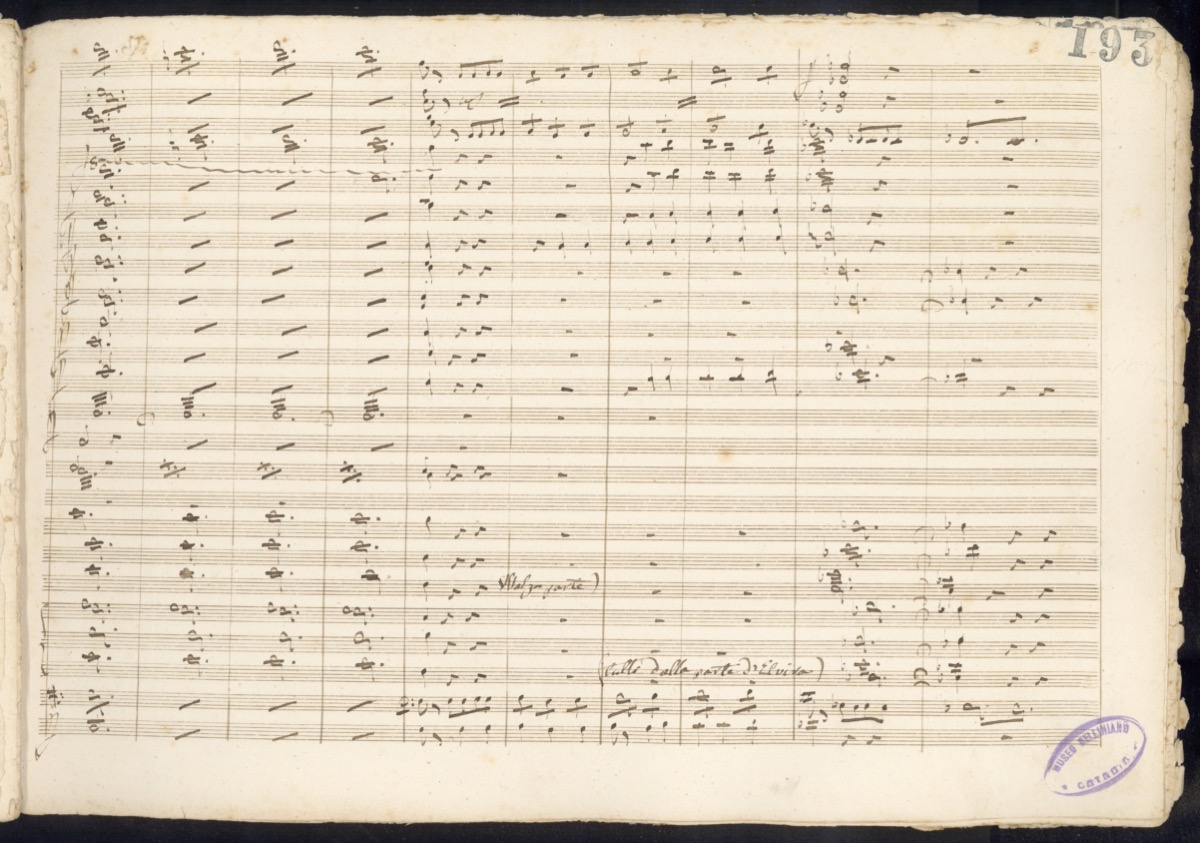 193
parte)
dalla parte d'Elvira)
MUSEO BELLINIANO
CATANIA